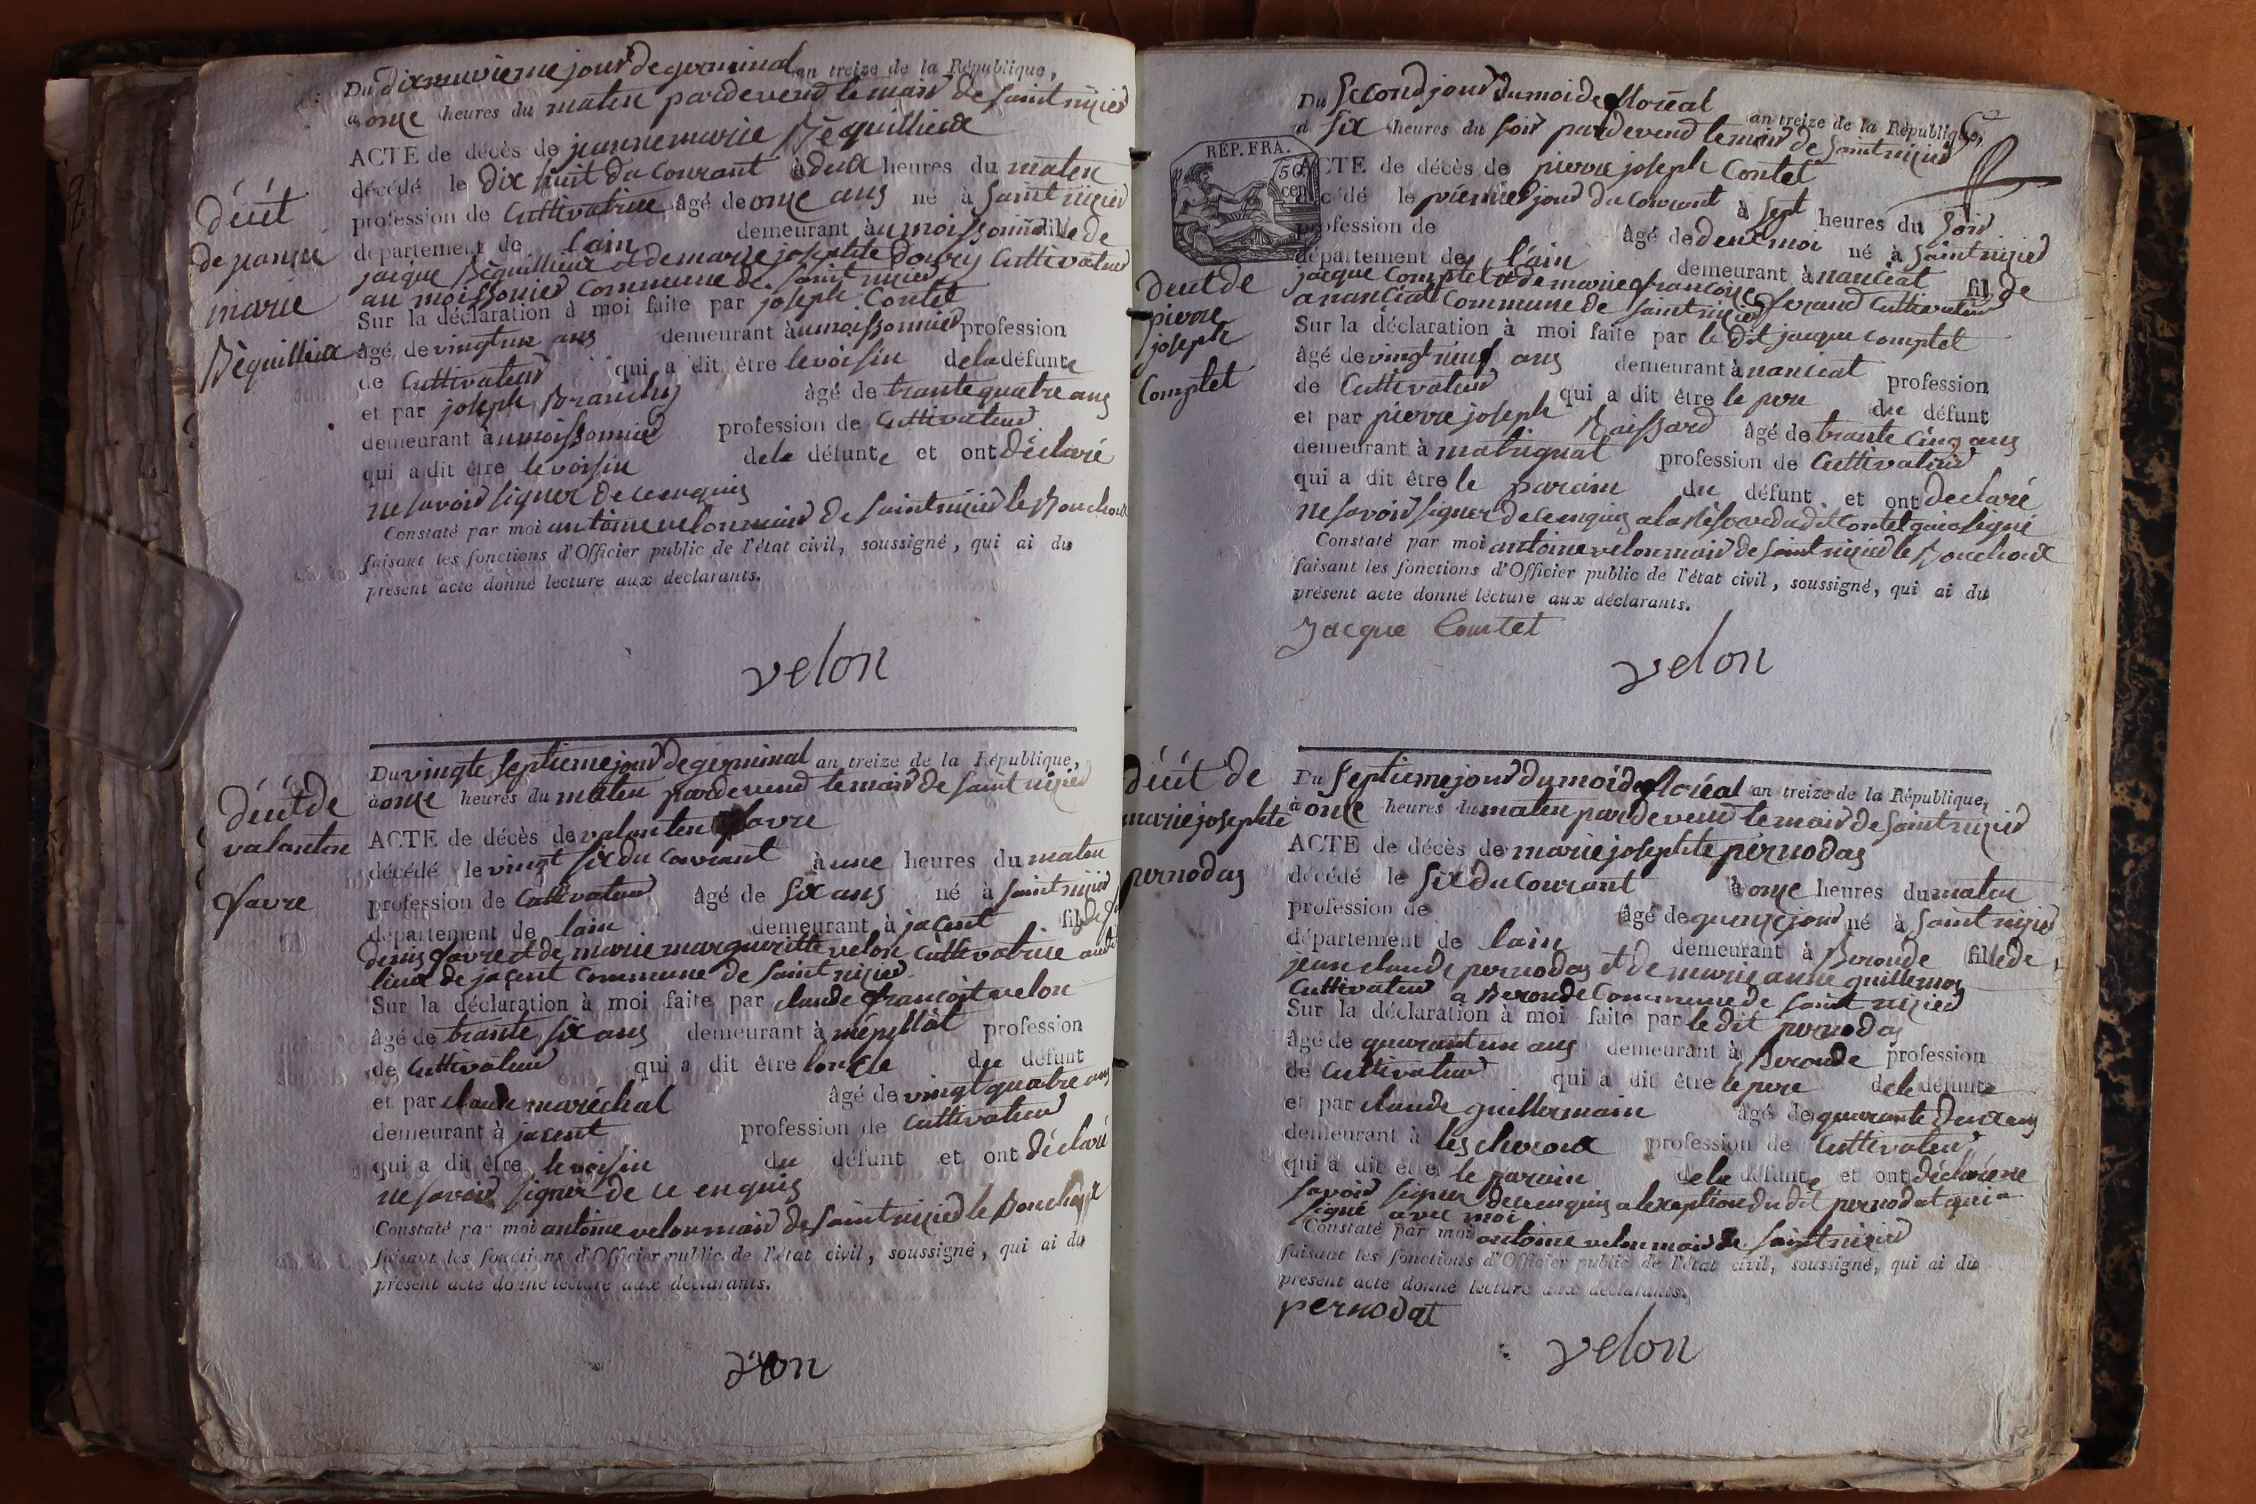 Du dixneuvieme jour de germinal an treize de la République,
à onze heures du maten pardevend le maire de saint nizied
ACTE de décès de jeanne marie Béquillieux
décédé le dix huit du courant à deux heures du maten
profession de Cultivatrice âgé de onze ans né à saint nizied
département de lain demeurant à u moissonnié fille de
jacque Béquillieux et de marie josephte Doury Cultivateur
au moissonied Commune de saint nizied
Sur la déclaration à moi faite par joseph Contet
âgé de vingtun ans demeurant à u moissonnied profession
de Cultivateur qui a dit être le voisin de la défunte
et par joseph Branchy âgé de trante quatre ans
demeurant à u moissonnied profession de Cultivateur
qui a dit être le voisin de la défunte et ont déclaré
ne savoir signer de ce enquis
Constaté par moi antoine velon maire de saint nizied le Bouchoux
faisant les fonctions d'Officier public de l'état civil, soussigné, qui ai du
présent acte donné lecture aux déclarants.
décét
de jeanne
marie
Béquillieux
velon
Du vingte septieme jour de germinal an treize de la République,
à onze heures du maten pardevend le maire de saint nizied
ACTE de décès de valanten favre
décédé le vingt six du courant à une heures du maten
profession de Cultivateur âgé de six ans né à saint nizied
département de lain demeurant à jacent fils de
denis favre et de marie margueritte velon cultivatrice au
lieux de jacent commune de saint nizied
Sur la déclaration à moi faite par claude françoit velon
âgé de trante six ans demeurant à mépillat profession
de Cultivateur qui a dit être loncle du défunt
et par claude maréchal âgé de vingt quatre ans
demeurant à jacent profession de Cultivateur
qui a dit être le voisin du défunt et ont déclaré
ne savoir signer de ce enquis
Constaté par moi antoine velon maire de saint nizied le Bouchoux
faisant les fonctions d'Officier public de l'état civil, soussigné, qui ai du
présent acte donné lecture aux déclarants.
décét de
valanten
favre
velon
Du second jour du moi de floréal an treize de la République,
à six heures du soir pardevend le maire de saint nizied
RÉP. FRA.
50
cen
ACTE de décès de pierre joseph Contet
décédé le premier jour du courant à sept heures du soir
profession de âgé de deux moi né à saint nizied
département de l'ain demeurant à nanciat fils de
jacque Comptet et de marie françoise ferand Cultivateur
a nanciat Commune de saint nizied
Sur la déclaration à moi faite par le dit jacque comptet
âgé de vingt neuf ans demeurant à nanciat profession
de Cultivateur qui a dit être le pere du défunt
et par pierre joseph Baissard âgé de trante cinq ans
demeurant à matrignat profession de Cultivateur
qui a dit être le parain du défunt et ont declaré
ne savoir signer de ce enquis a la réserve du dit Contet qui a signé
Constaté par moi antoine velon maire de saint nizied le Bouchoux
faisant les fonctions d'Officier public de l'état civil, soussigné, qui ai du
présent acte donné lecture aux déclarants.
Jacque Contet
velon
decét de
pierre
joseph
Comptet
Du septieme jour du moi de floréal an treize de la République,
à onze heures du maten pardevend le maire de saint nizied
ACTE de décès de marie josephte pernodas
décédé le six du courant à onze heures du maten
profession de âgé de quenze jour né à saint nizied
département de lain demeurant à Beronde fille de
jean claude pernodas et de marie anne guillemos
Cultivateur a Beronde Commune de saint nizied
Sur la déclaration à moi faite par le dit pernodas
âgé de quarant un ans demeurant à Beronde profession
de Cultivateur qui a dit être le pere de la défunte
et par claude guillermain âgé de quarante deux ans
demeurant à les cheroux profession de Cultivateur
qui a dit être le parain de la défunte et ont déclaré ne
savoir signer de ce enquis a lexeption du dit pernodat qui a
signé avec moi
Constaté par moi antoine velon maire de saint nizied
faisant les fonctions d'Officier public de l'état civil, soussigné, qui ai du
présent acte donné lecture aux déclarants.
pernodat
velon
décét de
marie josephte
pernodas